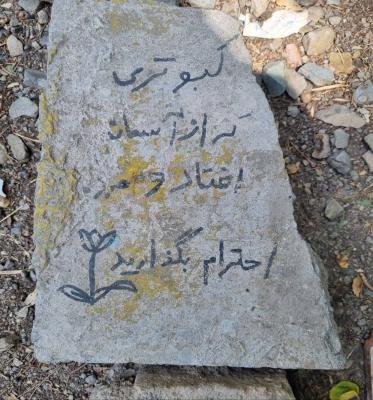 کبوتری
که از آسمان
افتاد و مرد.
احترام بگذارید